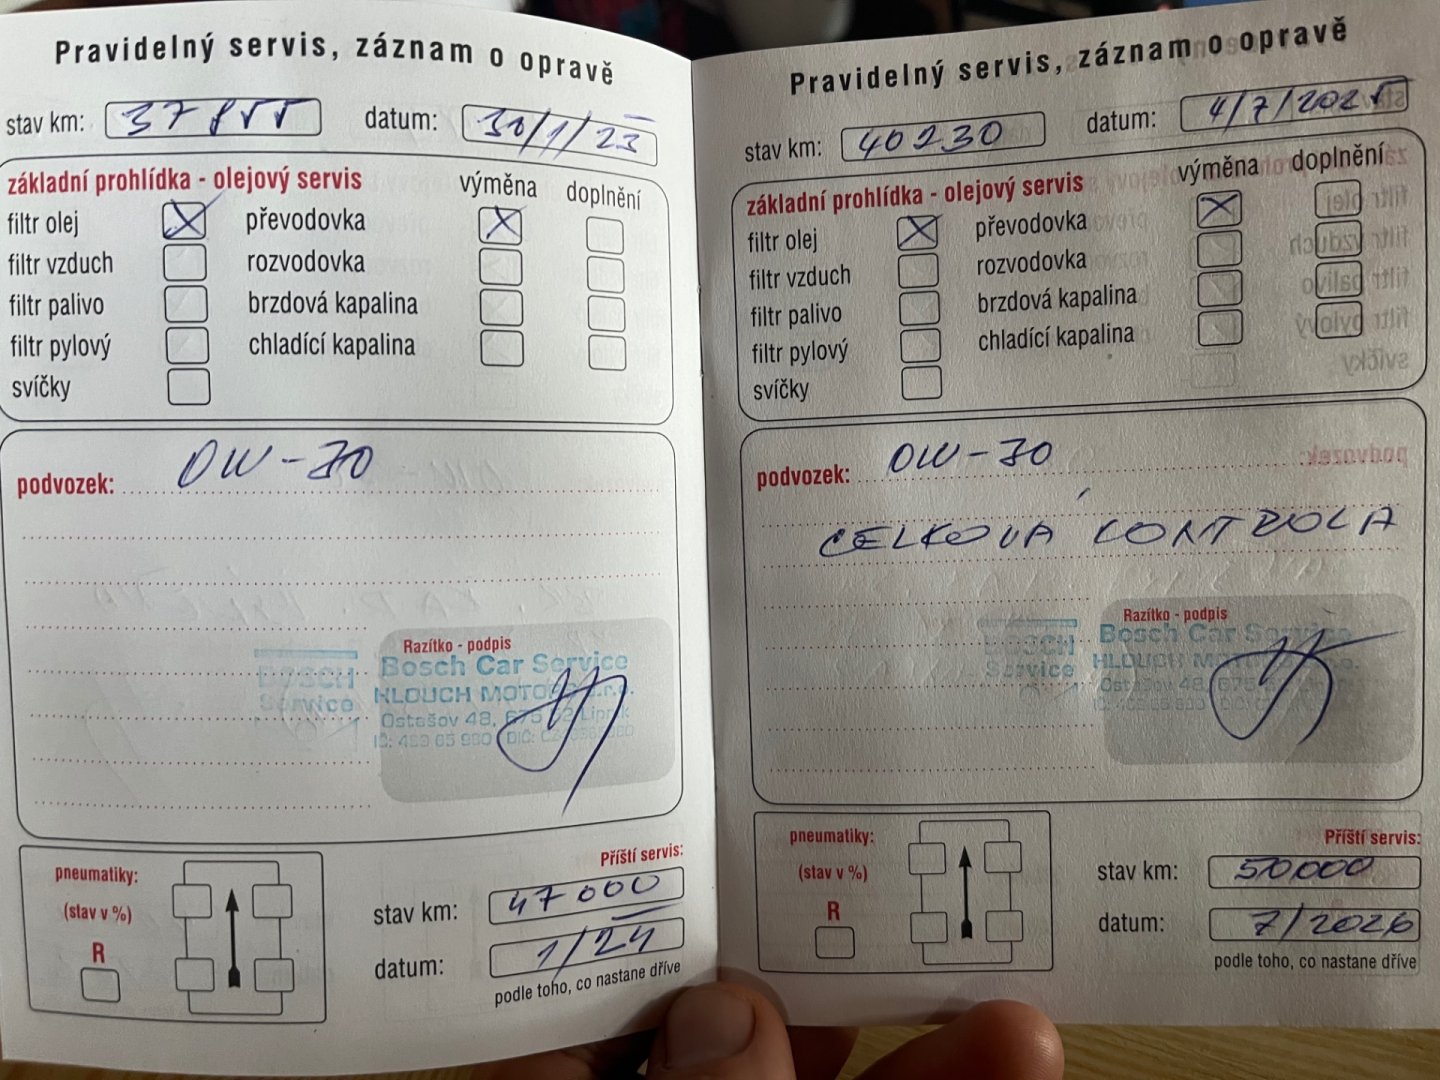 Pravidelný servis, záznam o opravě
stav km: 37 855 datum: 30/1/23
základní prohlídka - olejový servis výměna doplnění
filtr olej X převodovka X
filtr vzduch rozvodovka
filtr palivo brzdová kapalina
filtr pylový chladící kapalina
svíčky
podvozek: OW-30
Razítko - podpis
BOSCH Service
Bosch Car Service
HLOUCH MOTORS s.r.o.
Ostašov 48, 675 52 Lipník
IČ: 469 65 980 DIČ:
pneumatiky:
(stav v %)
R
Příští servis:
stav km: 47 000
datum: 1/24
podle toho, co nastane dříve
Pravidelný servis, záznam o opravě
stav km: 40230 datum: 4/7/2025
základní prohlídka - olejový servis výměna doplnění
filtr olej X převodovka X
filtr vzduch rozvodovka
filtr palivo brzdová kapalina
filtr pylový chladící kapalina
svíčky
podvozek: OW-30
CELKOVÁ KONTROLA
Razítko - podpis
BOSCH Service
Bosch Car Service
HLOUCH
Ostašov 48, 675
pneumatiky:
(stav v %)
R
Příští servis:
stav km: 50000
datum: 7/2026
podle toho, co nastane dříve